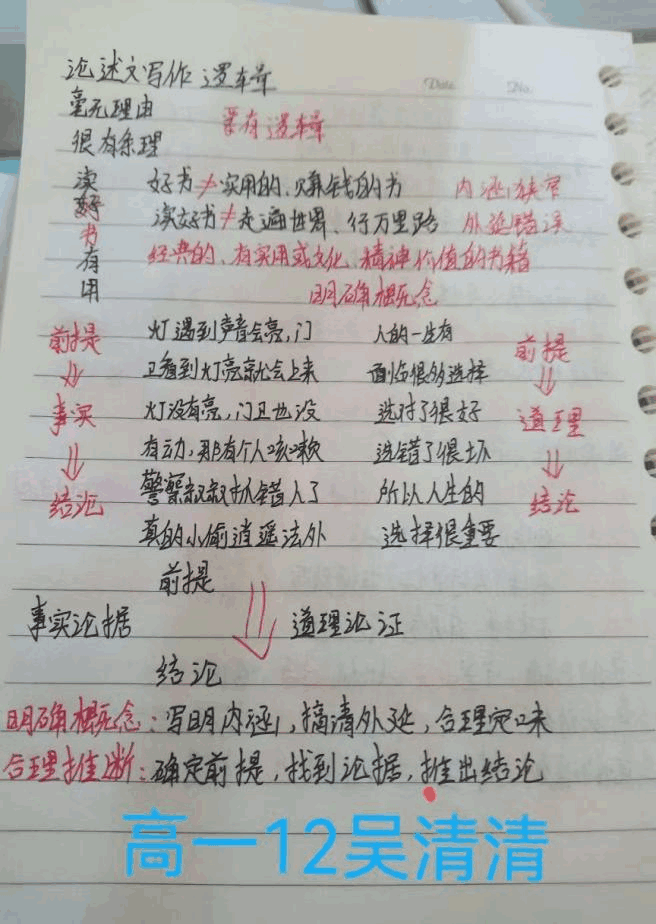 论述文写作 逻辑
Date. No.
毫无理由
要有逻辑
很有条理
读好书有用
好书≠实用的、赚钱的书 内涵狭窄
读好书≠走遍世界、行万里路 外延错误
经典的、有实用或文化、精神价值的书籍
明确概念
前提
⇓
事实
⇓
结论
灯遇到声音会亮,门
卫看到灯亮就会上来
灯没有亮,门卫也没
有动,那有个人咳嗽
警察叔叔抓错人了
真的小偷逍遥法外
人的一生有
面临很多选择
选对了很好
选错了很坏
所以人生的
选择很重要
前提
⇓
道理
⇓
结论
前提
事实论据 ⇓ 道理论证
结论
明确概念:写明内涵,搞清外延,合理定味
合理推断:确定前提,找到论据,推出结论
高一12吴清清